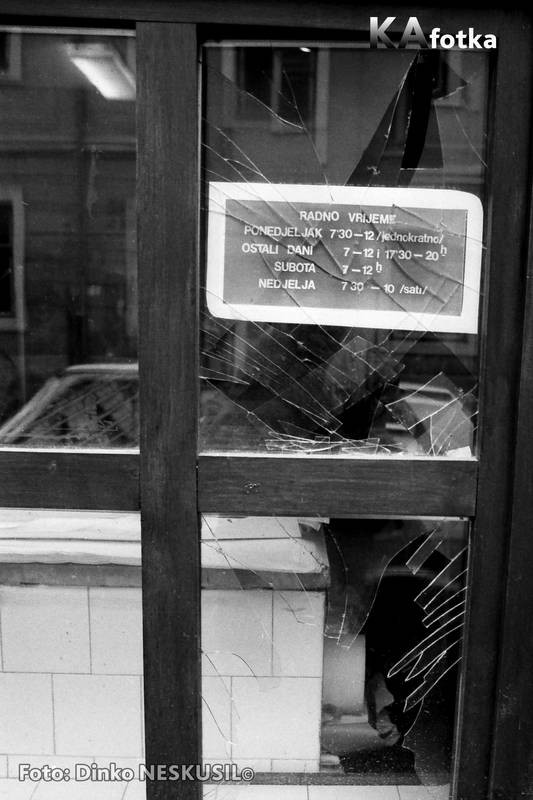 KAfotka
RADNO VRIJEME
PONEDJELJAK 7'30-12/jednokratno/
OSTALI DANI 7-12 i 17'30-20h
SUBOTA 7-12h
NEDJELJA 7 30 - 10 /sati/
Foto: Dinko NESKUSIL©